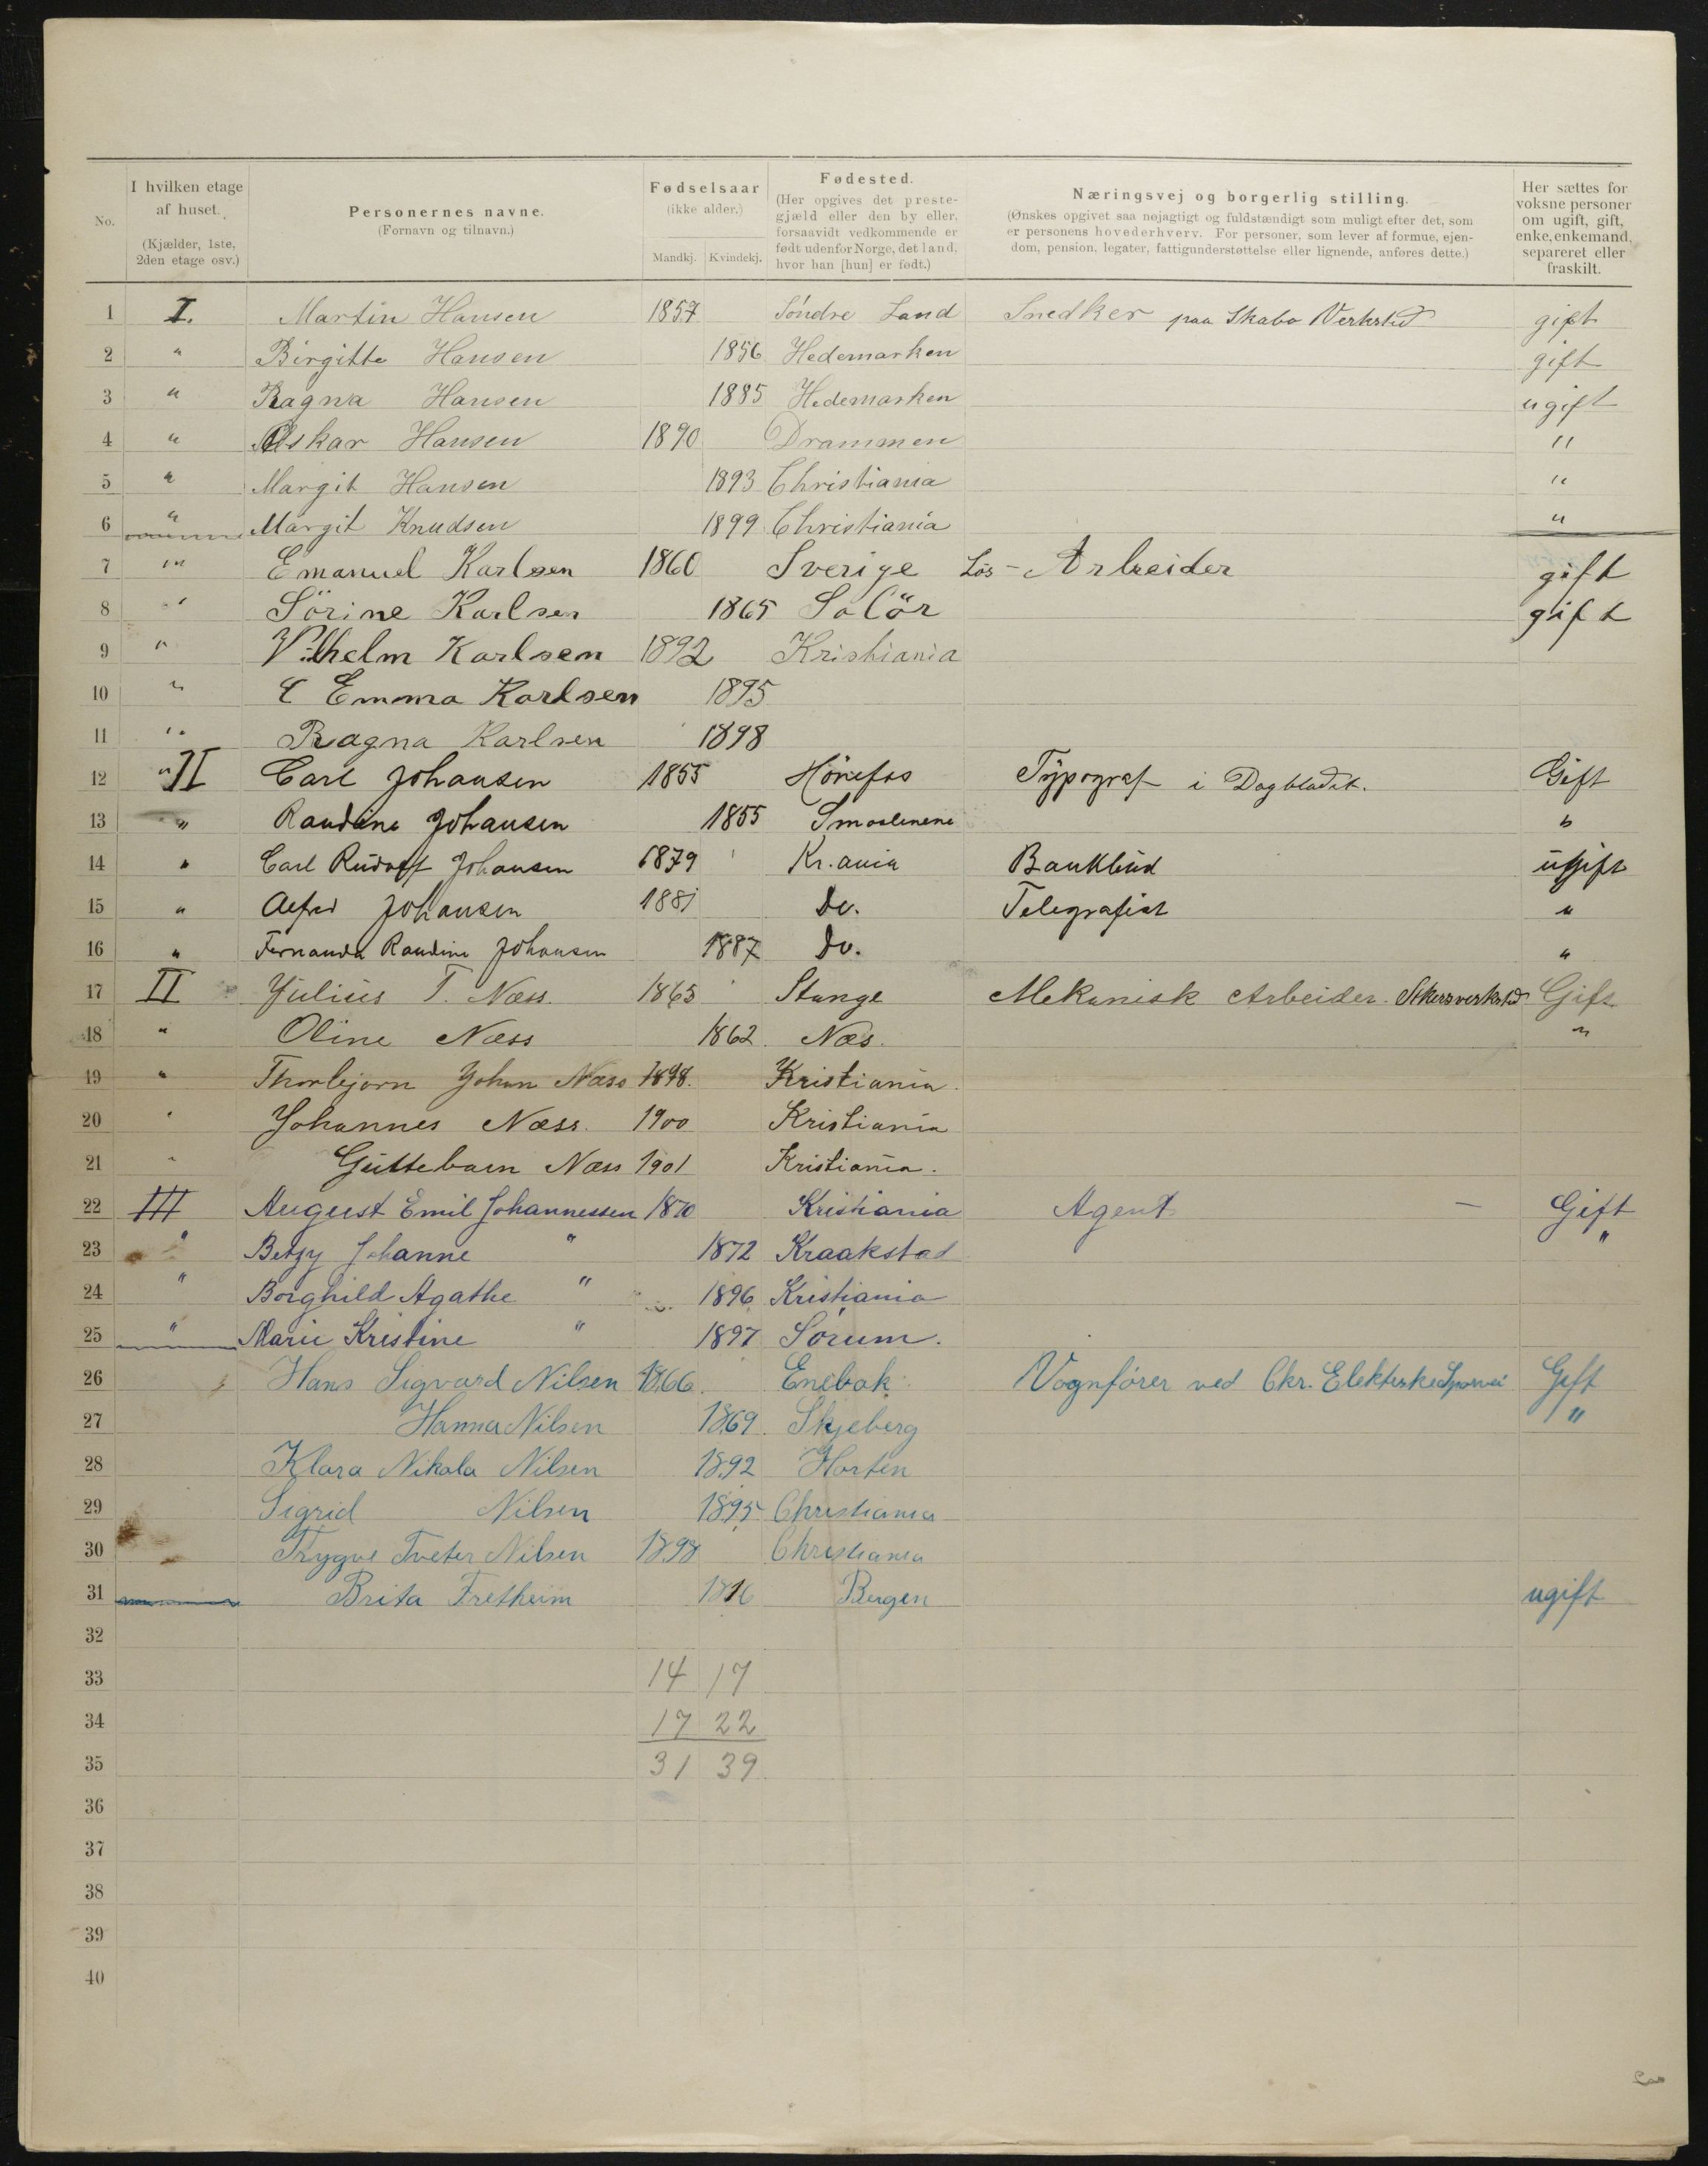 No.
I hvilken etage
af huset.
(Kjælder, 1ste,
2den etage osv.)
Personernes navne.
(Fornavn og tilnavn.)
Fødselsaar
(ikke alder.)
Mandkj. Kvindekj.
Fødested.
(Her opgives det preste-
gjæld eller den by eller,
forsaavidt vedkommende er
født udenfor Norge, det land,
hvor han [hun] er født.)
Næringsvej og borgerlig stilling.
(Ønskes opgivet saa nøjagtigt og fuldstændigt som muligt efter det, som
er personens hovederhverv. For personer, som lever af formue, ejen-
dom, pension, legater, fattigunderstøttelse eller lignende, anføres dette.)
Her sættes for
voksne personer
om ugift, gift,
enke, enkemand,
separeret eller
fraskilt.
1 I. Martin Hansen 1857 Söndre Land Snedker paa Skabo Verksted gift
2 " Birgitte Hansen 1856 Hedemarken gift
3 " Ragna Hansen 1885 Hedemarken ugift
4 " Oskar Hansen 1890 Drammen "
5 " Margit Hansen 1893 Christiania "
6 " Margit Knudsen 1899 Christiania "
7 " Emanuel Karlsen 1860 Sverige Lös-Arbeider gift
8 " Sörine Karlsen 1865 Solör gift
9 " Vilhelm Karlsen 1892 Kristiania
10 " Emma Karlsen 1895
11 " Ragna Karlsen 1898
12 " II Carl Johansen 1855 Hönefos Typograf i Dagbladet. Gift
13 " Randine Johansen 1855 Smaalenene "
14 " Carl Rudolf Johansen 1879 Kr.ania Bankbud ugift
15 " Alfred Johansen 1881 Do. Telegrafist "
16 " Fernanda Randine Johansen 1887 Do. "
17 II Julius T. Næss. 1865 Stange Mekanisk Arbeider. Gift
18 " Oline Næss 1862. Næs. "
19 " Thorbjørn Johan Næss 1898. Kristiania.
20 " Johannes Næss. 1900 Kristiania
21 " Guttebarn Næss 1901 Kristiania.
22 III August Emil Johannessen 1870 Kristiania Agent — Gift
23 " Betzy Johanne " 1872 Kraakstad "
24 " Borghild Agathe " 1896 Kristiania
25 " Marie Kristine " 1897 Sørum.
26 Hans Sigvard Nilsen 1866. Enebak Vognfører ved Chr. Elektriske Sporvei Gift
27 Hanna Nilsen 1869. Skjeberg "
28 Klara Nikola Nilsen 1892 Horten
29 Sigrid Nilsen 1895 Christiania
30 Trygve Tveter Nilsen 1898 Christiania
31 Brita Fretheim Bergen ugift
32
33 14 17
34 17 22
35 31 39
36
37
38
39
40